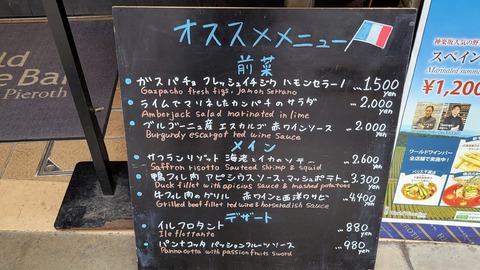 オススメメニュー
前菜
ガスパチョ フレッシュイチジク ハモンセラーノ ... 1.500 yen
Gazpacho fresh figs, Jamon Serrano
ライムでマリネしたカンパチのサラダ ... 2.000 yen
Amberjack salad marinated in lime
ブルゴーニュ産 エスカルゴ 赤ワインソース ... 2.000 yen
Burgundy escargot red wine sauce
メイン
サフランリゾット 海老とイカのソテー ... 2.600 yen
Saffron risotto Sauteed shrimp & squid
鴨フィレ肉 アピシウスソース、マッシュポテト ... 3.300 yen
Duck fillet with apicius sauce & mashed potatoes
牛フィレ肉のグリル 赤ワインと西洋ワサビ ... 4.400 yen
Grilled beef fillet red wine & horseradish sauce
デザート
イルフロタント ... 880 yen
Ile flottante
パンナコッタ パッションフルーツソース ... 980 yen
Pannacotta with passion fruits sword
ld
e Ba
Pieroth
神楽坂人気の野
スペイン
Marinated summer
¥1,200
ワールドワインバー
全店舗で実施中!